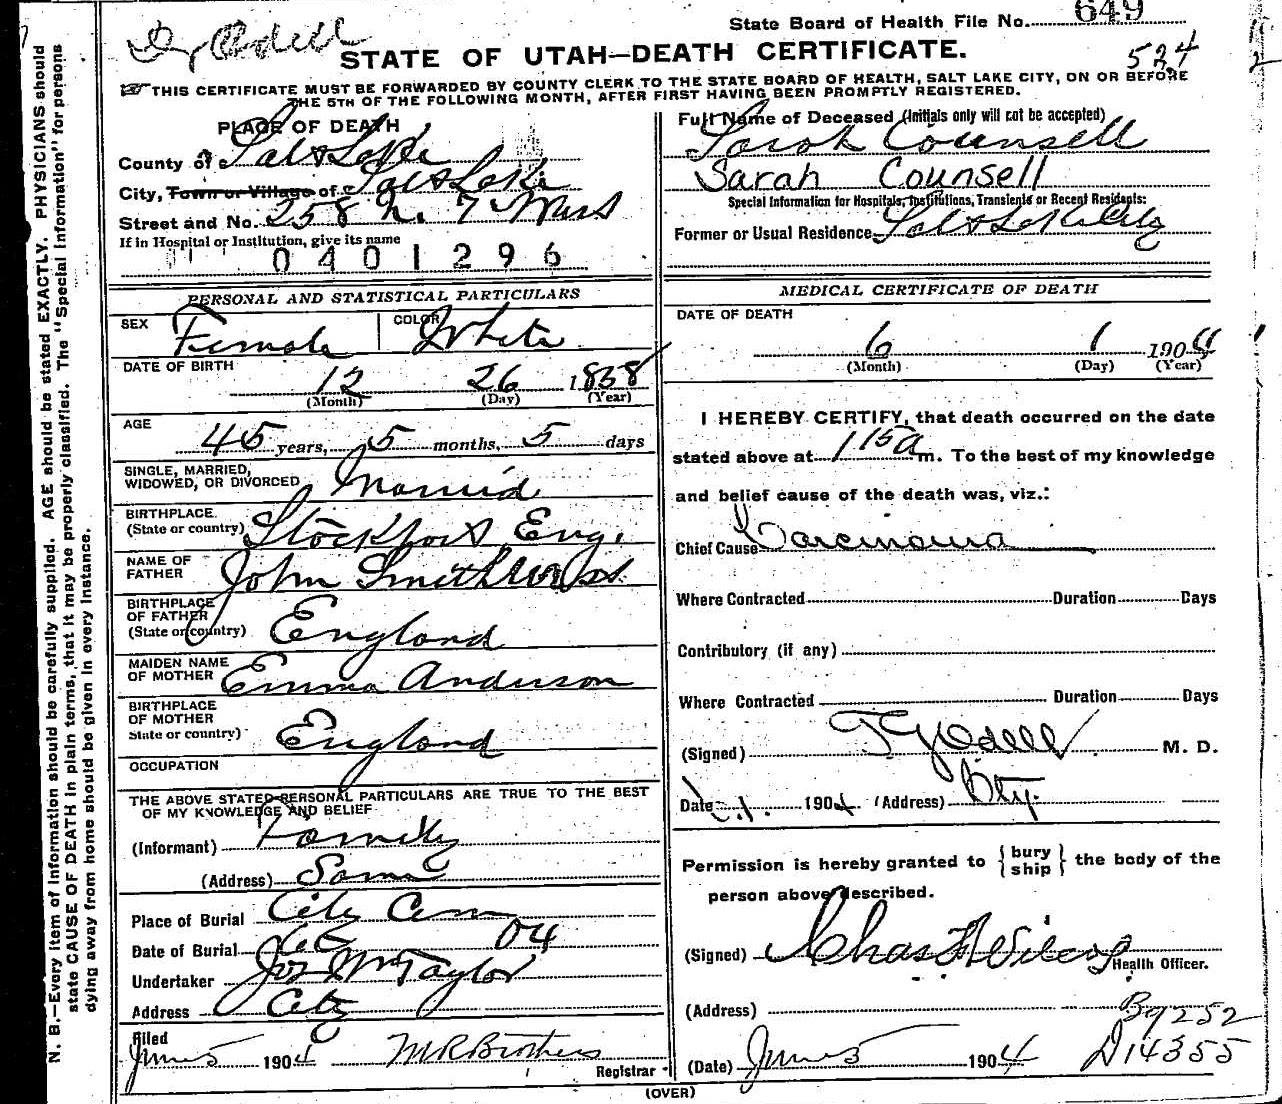 State Board of Health File No. 649
Odell
STATE OF UTAH—DEATH CERTIFICATE.
524
THIS CERTIFICATE MUST BE FORWARDED BY COUNTY CLERK TO THE STATE BOARD OF HEALTH, SALT LAKE CITY, ON OR BEFORE
THE 5TH OF THE FOLLOWING MONTH, AFTER FIRST HAVING BEEN PROMPTLY REGISTERED.
PLACE OF DEATH
County of Salt Lake
City, Town or Village of Salt Lake
Street and No. 258 N. 7 West
If in Hospital or Institution, give its name
0401296
Full Name of Deceased (Initials only will not be accepted)
Sarah Counsell
Sarah Counsell
Special Information for Hospitals, Institutions, Transients or Recent Residents:
Former or Usual Residence Salt Lake City
PERSONAL AND STATISTICAL PARTICULARS
SEX Female COLOR White
DATE OF BIRTH
12 26 1858
(Month) (Day) (Year)
AGE
45 years, 5 months, 5 days
SINGLE, MARRIED,
WIDOWED, OR DIVORCED Married
BIRTHPLACE
(State or country) Stockport Eng.
NAME OF
FATHER John Smith
BIRTHPLACE
OF FATHER
(State or country) England
MAIDEN NAME
OF MOTHER Emma Anderson
BIRTHPLACE
OF MOTHER
State or country) England
OCCUPATION
THE ABOVE STATED PERSONAL PARTICULARS ARE TRUE TO THE BEST
OF MY KNOWLEDGE AND BELIEF
(Informant) Family
(Address) Same
Place of Burial City Cem
Date of Burial 04
Undertaker Jos Wm Taylor
Address City
Filed
June 5 1904 M R Brothers
Registrar
MEDICAL CERTIFICATE OF DEATH
DATE OF DEATH
6 1 1904
(Month) (Day) (Year)
I HEREBY CERTIFY, that death occurred on the date
stated above at 115 a m. To the best of my knowledge
and belief cause of the death was, viz.:
Chief Cause Carcinoma
Where Contracted Duration Days
Contributory (if any)
Where Contracted Duration Days
(Signed) T G Odell M. D.
Date 1904 (Address) City
Permission is hereby granted to { bury
ship } the body of the
person above described.
(Signed) Chas F Wilcox
Health Officer.
(Address)
B9252
D14355
(Date) June 5 1904
(OVER)
N. B.—Every item of information should be carefully supplied. AGE should be stated EXACTLY. PHYSICIANS should
state CAUSE OF DEATH in plain terms, that it may be properly classified. The "Special Information" for persons
dying away from home should be given in every instance.